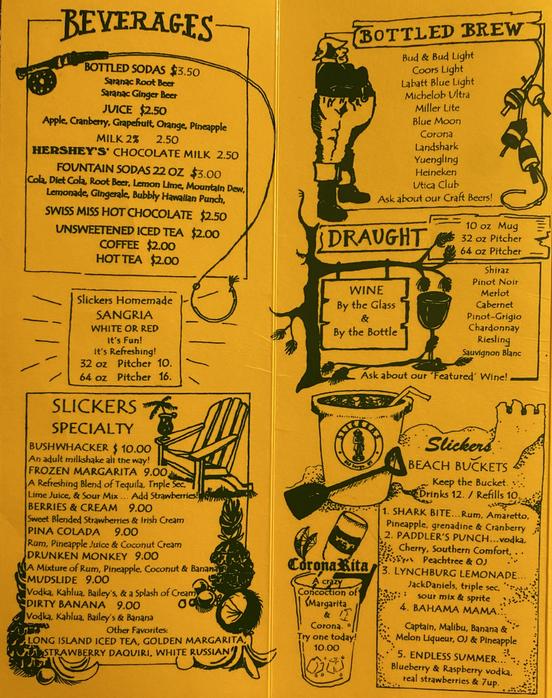 BEVERAGES
BOTTLED SODAS $3.50
Saranac Root Beer
Saranac Ginger Beer
JUICE $2.50
Apple, Cranberry, Grapefruit, Orange, Pineapple
MILK 2% 2.50
HERSHEY'S' CHOCOLATE MILK 2.50
FOUNTAIN SODAS 22 OZ $3.00
Cola, Diet Cola, Root Beer, Lemon Lime, Mountain Dew,
Lemonade, Gingerale, Bubbly Hawaiian Punch,
SWISS MISS HOT CHOCOLATE $2.50
UNSWEETENED ICED TEA $2.00
COFFEE $2.00
HOT TEA $2.00
Slickers Homemade
SANGRIA
WHITE OR RED
It's Fun!
It's Refreshing!
32 oz Pitcher 10.
64 oz Pitcher 16.
SLICKERS
SPECIALTY
BUSHWHACKER $ 10.00
An adult milkshake all the way!
FROZEN MARGARITA 9.00
A Refreshing Blend of Tequila, Triple Sec,
Lime Juice, & Sour Mix ... Add Strawberries!
BERRIES & CREAM 9.00
Sweet Blended Strawberries & Irish Cream
PINA COLADA 9.00
Rum, Pineapple Juice & Coconut Cream
DRUNKEN MONKEY 9.00
A Mixture of Rum, Pineapple, Coconut & Banana
MUDSLIDE 9.00
Vodka, Kahlua, Bailey's, & a Splash of Cream
DIRTY BANANA 9.00
Vodka, Kahlua, Bailey's & Banana
Other Favorites:
LONG ISLAND ICED TEA, GOLDEN MARGARITA,
STRAWBERRY DAQUIRI, WHITE RUSSIAN
BOTTLED BREW
Bud & Bud Light
Coors Light
Labatt Blue Light
Michelob Ultra
Miller Lite
Blue Moon
Corona
Landshark
Yuengling
Heineken
Utica Club
Ask about our Craft Beers!
DRAUGHT
10 oz Mug
32 oz Pitcher
64 oz Pitcher
WINE
By the Glass
&
By the Bottle
Shiraz
Pinot Noir
Merlot
Cabernet
Pinot-Grigio
Chardonnay
Riesling
Sauvignon Blanc
Ask about our 'Featured' Wine!
SLICKERS
Slickers
BEACH BUCKETS
Keep the Bucket.
Drinks 12. / Refills 10
1. SHARK BITE...Rum, Amaretto,
Pineapple, grenadine & Cranberry
2. PADDLER'S PUNCH...vodka,
Cherry, Southern Comfort,
Peachtree & OJ
3. LYNCHBURG LEMONADE...
JackDaniels, triple sec,
sour mix & sprite
4. BAHAMA MAMA...
Captain, Malibu, Banana &
Melon Liqueur, OJ & Pineapple
5. ENDLESS SUMMER...
Blueberry & Raspberry vodka,
real strawberries & 7up.
CoronaRita
A crazy
Concoction of
Margarita
&
Corona.
Try one today!
10.00